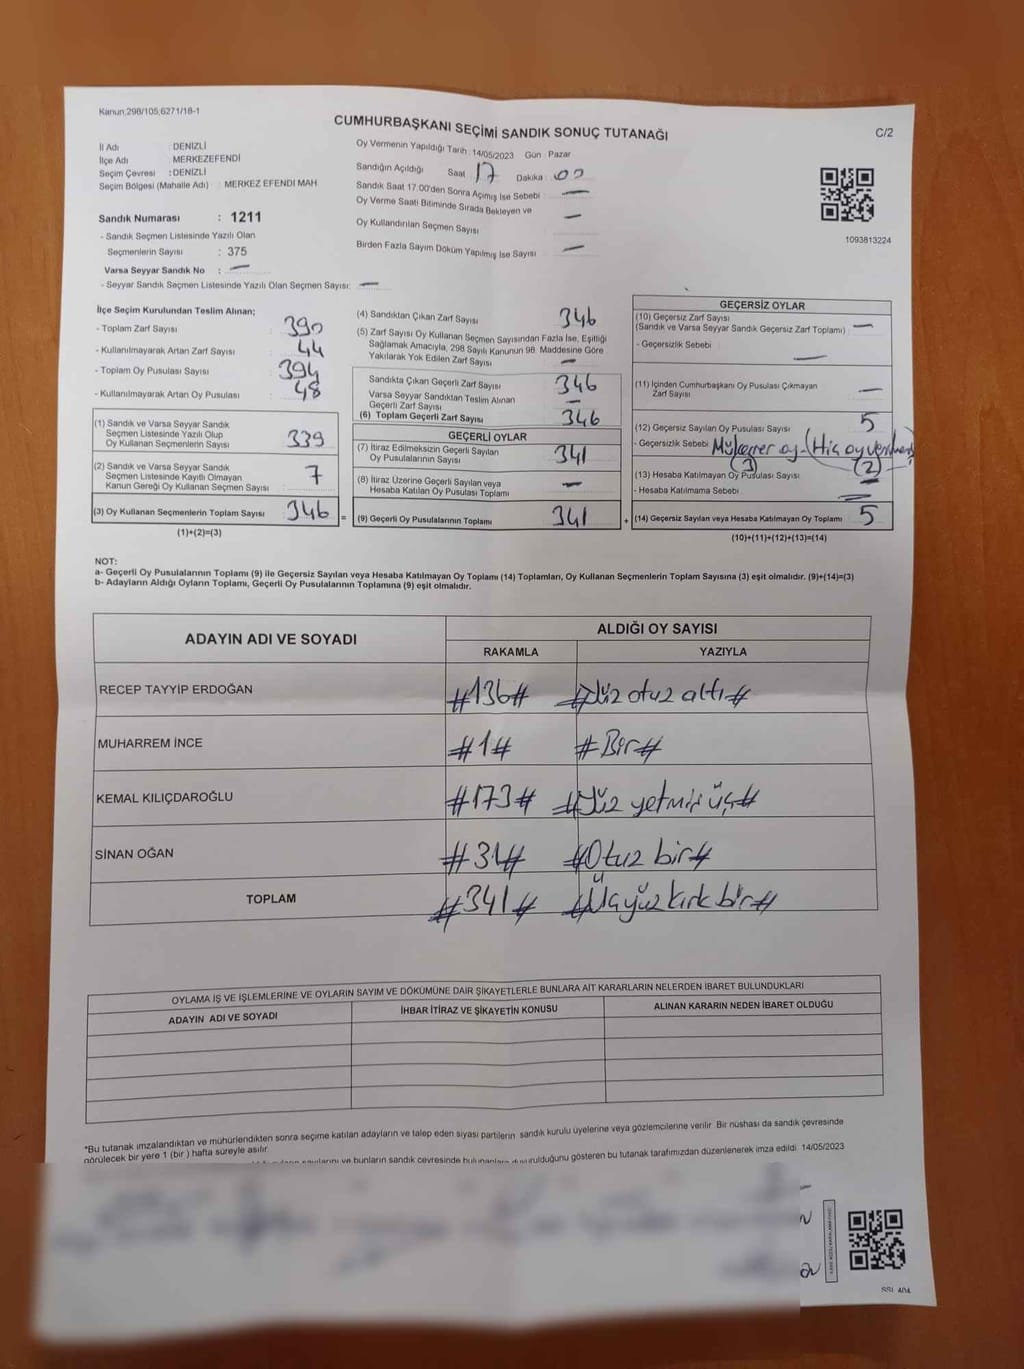 Kanun;298/105;6271/18-1
CUMHURBAŞKANI SEÇİMİ SANDIK SONUÇ TUTANAĞI
C/2
İl Adı : DENİZLİ
İlçe Adı : MERKEZEFENDİ
Seçim Çevresi : DENİZLİ
Seçim Bölgesi (Mahalle Adı) : MERKEZ EFENDİ MAH
Sandık Numarası : 1211
- Sandık Seçmen Listesinde Yazılı Olan
Seçmenlerin Sayısı : 375
Varsa Seyyar Sandık No : —
- Seyyar Sandık Seçmen Listesinde Yazılı Olan Seçmen Sayısı: —
Oy Vermenin Yapıldığı Tarih :14/05/2023 Gün : Pazar
Sandığın Açıldığı Saat 17 Dakika : 00
Sandık Saat 17:00'den Sonra Açımış İse Sebebi —
Oy Verme Saati Bitiminde Sırada Bekleyen ve
Oy Kullandırılan Seçmen Sayısı —
Birden Fazla Sayım Döküm Yapılmış İse Sayısı —
1093813224
İlçe Seçim Kurulundan Teslim Alınan;
- Toplam Zarf Sayısı : 390
- Kullanılmayarak Artan Zarf Sayısı : 44
- Toplam Oy Pusulası Sayısı : 394
- Kullanılmayarak Artan Oy Pusulası : 48
(1) Sandık ve Varsa Seyyar Sandık
Seçmen Listesinde Yazılı Olup
Oy Kullanan Seçmenlerin Sayısı : 339
(2) Sandık ve Varsa Seyyar Sandık
Listesinde Kayıtlı Olmayan
Kanun Gereği Oy Kullanan Seçmen Sayısı : 7
(3) Oy Kullanan Seçmenlerin Toplam Sayısı : 346 =
(1)+(2)=(3)
(4) Sandıktan Çıkan Zarf Sayısı 346
(5) Zarf Sayısı Oy Kullanan Seçmen Sayısından Fazla İse, Eşitliği
Sağlamak Amacıyla, 298 Sayılı Kanunun 98. Maddesine Göre
Yakılarak Yok Edilen Zarf Sayısı —
Sandıkta Çıkan Geçerli Zarf Sayısı 346
Varsa Seyyar Sandıktan Teslim Alınan
Geçerli Zarf Sayısı —
(6) Toplam Geçerli Zarf Sayısı 346
GEÇERLİ OYLAR
(7) İtiraz Edilmeksizin Geçerli Sayılan
Oy Pusulalarının Sayısı 341
(8) İtiraz Üzerine Geçerli Sayılan veya
Hesaba Katılan Oy Pusulası Toplamı —
(9) Geçerli Oy Pusulalarının Toplamı 341 +
GEÇERSİZ OYLAR
(10) Geçersiz Zarf Sayısı
(Sandık ve Varsa Seyyar Sandık Geçersiz Zarf Toplamı) —
- Geçersizlik Sebebi —
(11) İçinden Cumhurbaşkanı Oy Pusulası Çıkmayan
Zarf Sayısı —
(12) Geçersiz Sayılan Oy Pusulası Sayısı 5
- Geçersizlik Sebebi
(3) (2)
(13) Hesaba Katılmayan Oy Pusulası Sayısı —
- Hesaba Katılmama Sebebi —
(14) Geçersiz Sayılan veya Hesaba Katılmayan Oy Toplamı 5
(10)+(11)+(12)+(13)=(14)
NOT:
a- Geçerli Oy Pusulalarının Toplamı (9) ile Geçersiz Sayılan veya Hesaba Katılmayan Oy Toplamı (14) Toplamları, Oy Kullanan Seçmenlerin Toplam Sayısına (3) eşit olmalıdır. (9)+(14)=(3)
b- Adayların Aldığı Oyların Toplamı, Geçerli Oy Pusulalarının Toplamına (9) eşit olmalıdır.
ADAYIN ADI VE SOYADI ALDIĞI OY SAYISI
RAKAMLA YAZIYLA
RECEP TAYYİP ERDOĞAN #136# #Yüz otuz altı#
MUHARREM İNCE #1# #Bir#
KEMAL KILIÇDAROĞLU #173# #Yüz yetmiş üç#
SİNAN OĞAN #31# #Otuz bir#
TOPLAM #341# #Üçyüz kırk bir#
OYLAMA İŞ VE İŞLEMLERİNE VE OYLARIN SAYIM VE DÖKÜMÜNE DAİR ŞİKAYETLERLE BUNLARA AİT KARARLARIN NELERDEN İBARET BULUNDUKLARI
ADAYIN ADI VE SOYADI İHBAR İTİRAZ VE ŞİKAYETİN KONUSU ALINAN KARARIN NEDEN İBARET OLDUĞU
*Bu tutanak imzalandıktan ve mühürlendikten sonra seçime katılan adayların ve talep eden siyasi partilerin sandık kurulu üyelerine veya gözlemcilerine verilir. Bir nüshası da sandık çevresinde
görülecek bir yere 1 (bir) hafta süreyle asılır.
ve bunların sandık çevresinde gösteren bu tutanak tarafımızdan düzenlenerek imza edildi. 14/05/2023